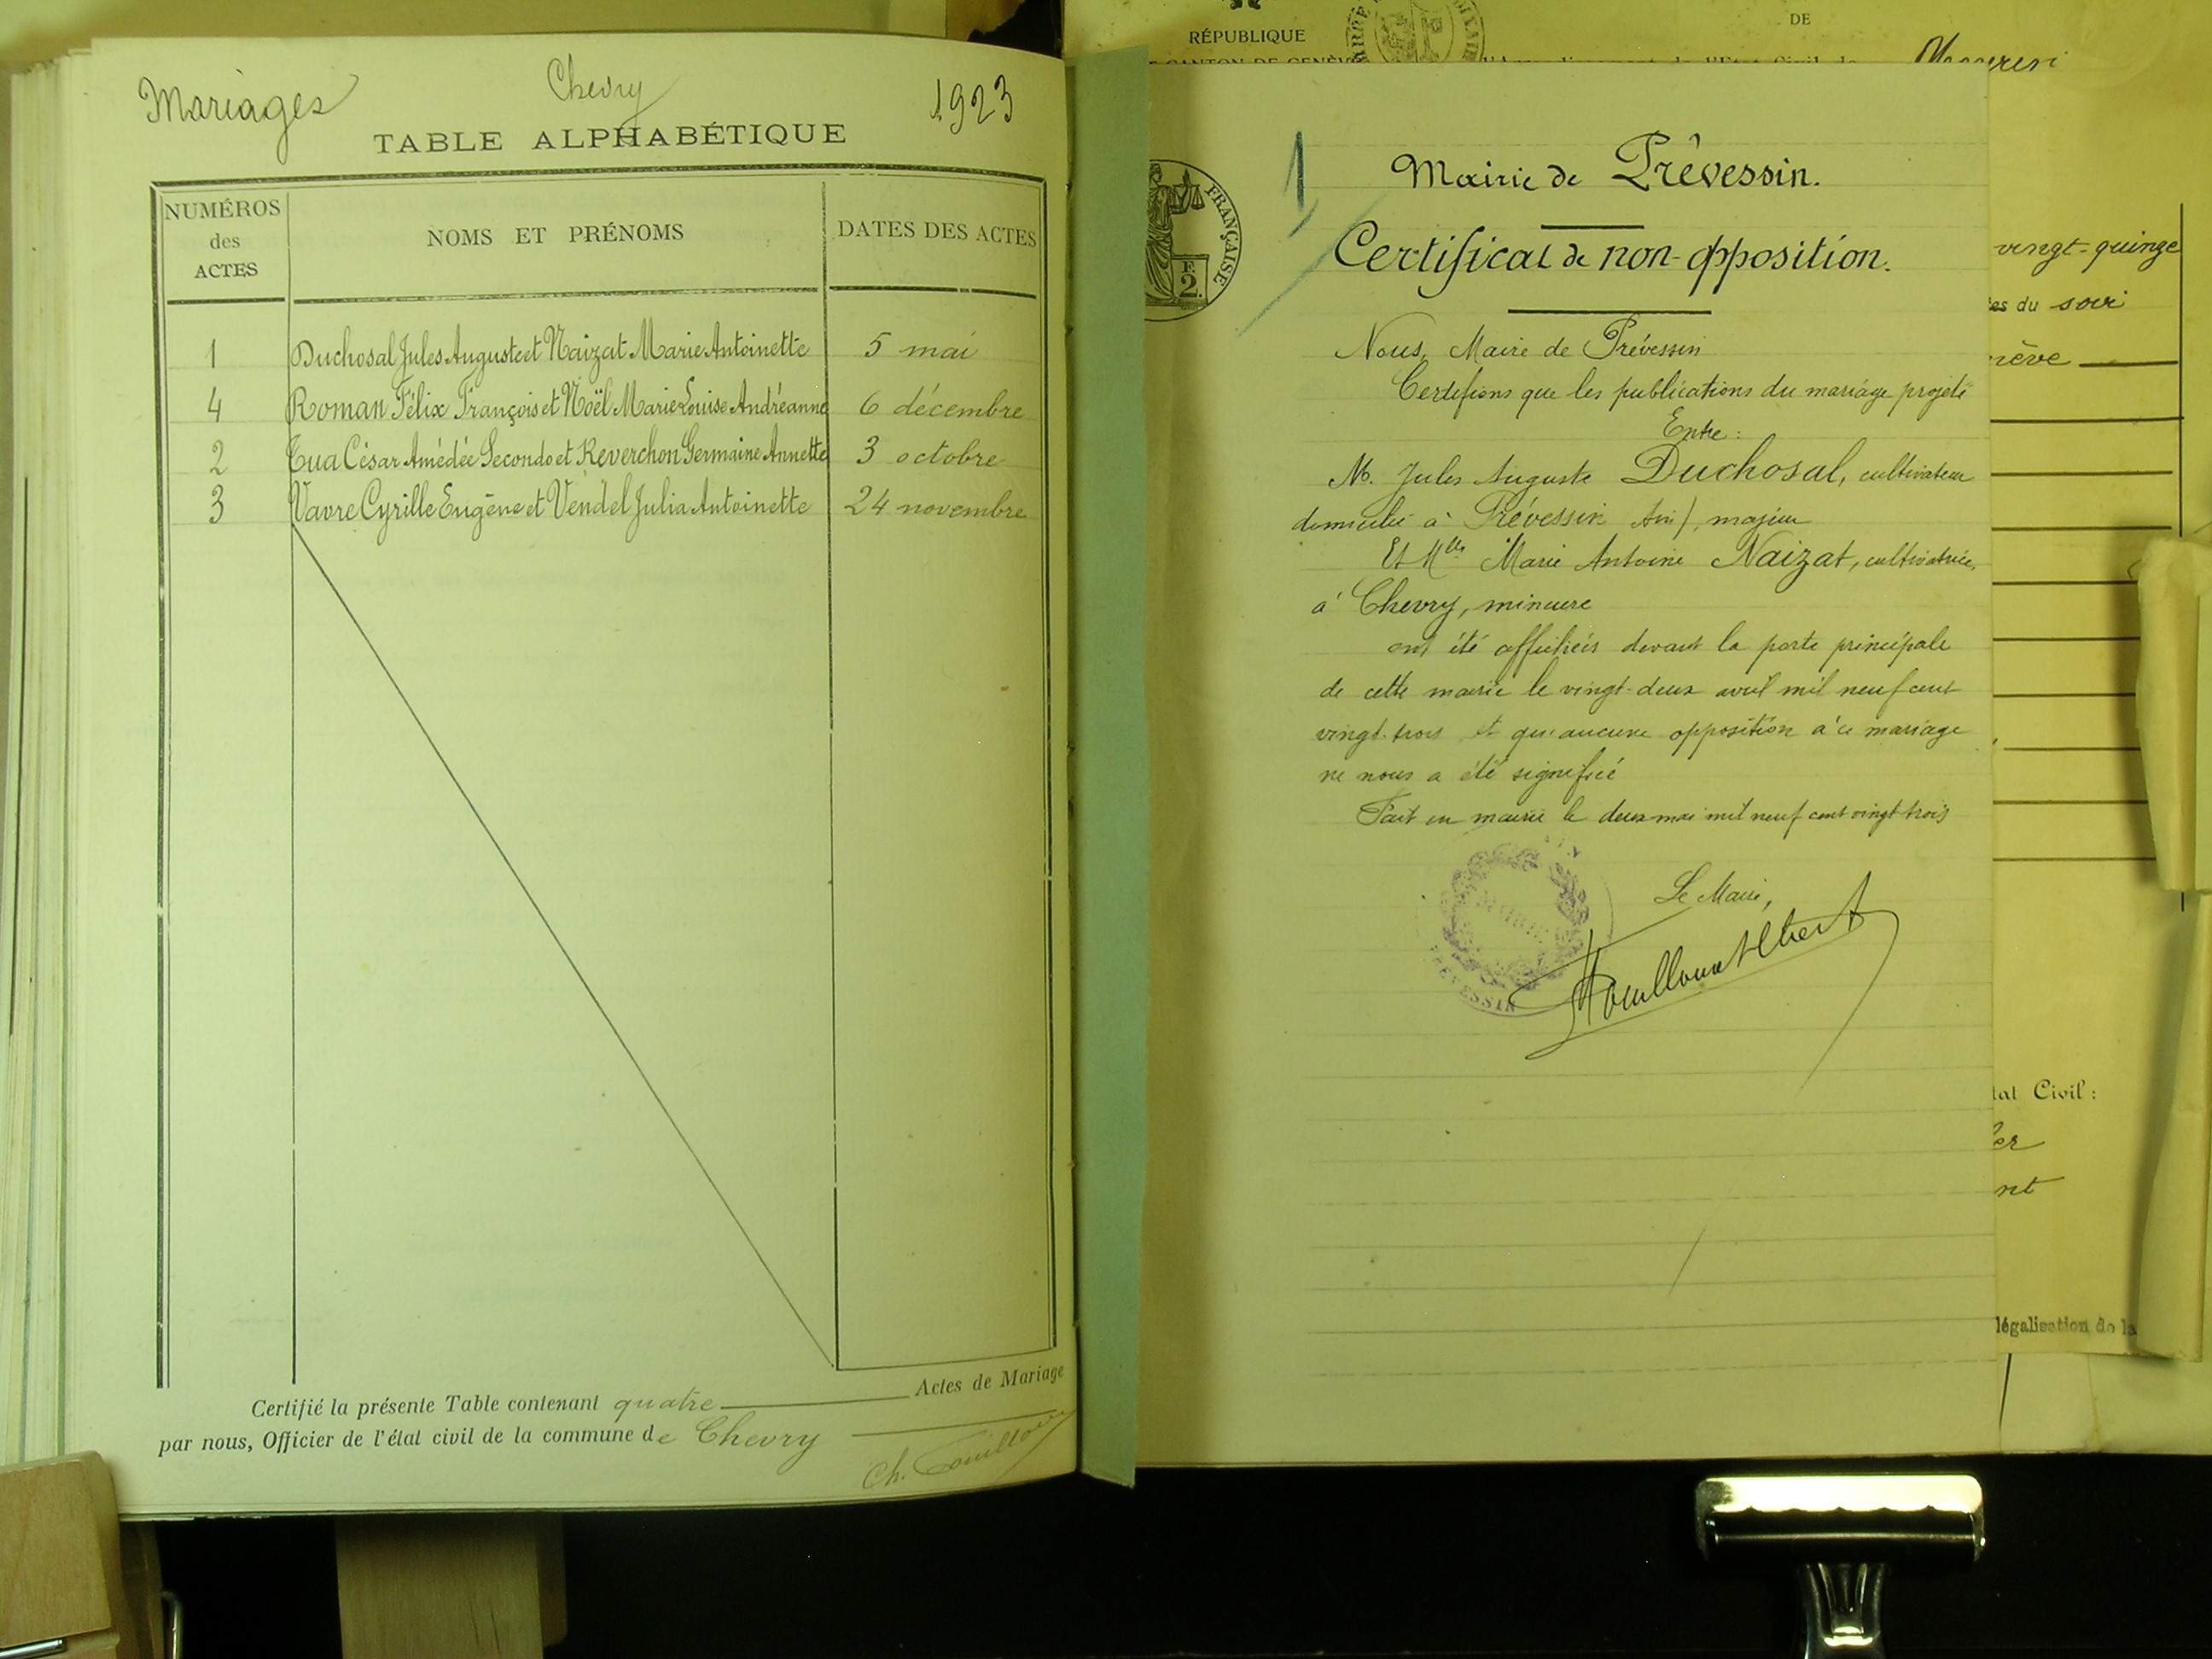 Mariages Chevry 1923
TABLE ALPHABÉTIQUE
NUMÉROS des ACTES
NOMS ET PRÉNOMS
DATES DES ACTES
1 Duchosal Jules Auguste et Naizat Marie Antoinette 5 mai
4 Roman Félix François et Noël Marie Louise Andréanne 6 décembre
2 Tua César Amédée Secondo et Reverchon Germaine Annette 3 octobre
3 Vavre Cyrille Eugène et Vendel Julia Antoinette 24 novembre
Certifié la présente Table contenant quatre Actes de Mariage
par nous, Officier de l'état civil de la commune de Chevry
Ch.
RÉPUBLIQUE
DE
FRANÇAISE
F.
2.
1
Mairie de Prévessin.
Certificat de non-opposition.
Nous, Maire de Prévessin
Certifions que les publications du mariage projeté
Entre:
M. Jules Auguste Duchosal, cultivateur
domicilié à Prévessin Ain), majeur
Et Mlle Marie Antoine Naizat, cultivatrice,
à Chevry, mineure
ont été affichées devant la porte principale
de cette mairie le vingt-deux avril mil neuf cent
vingt-trois et qu'aucune opposition à ce mariage
ne nous a été signifié
Fait en mairie le deux mai mil neuf cent vingt trois
Le Maire,
MAIRIE
PREVESSIN
vingt-quinze
es du soir
nève
tat Civil:
légalisation de la